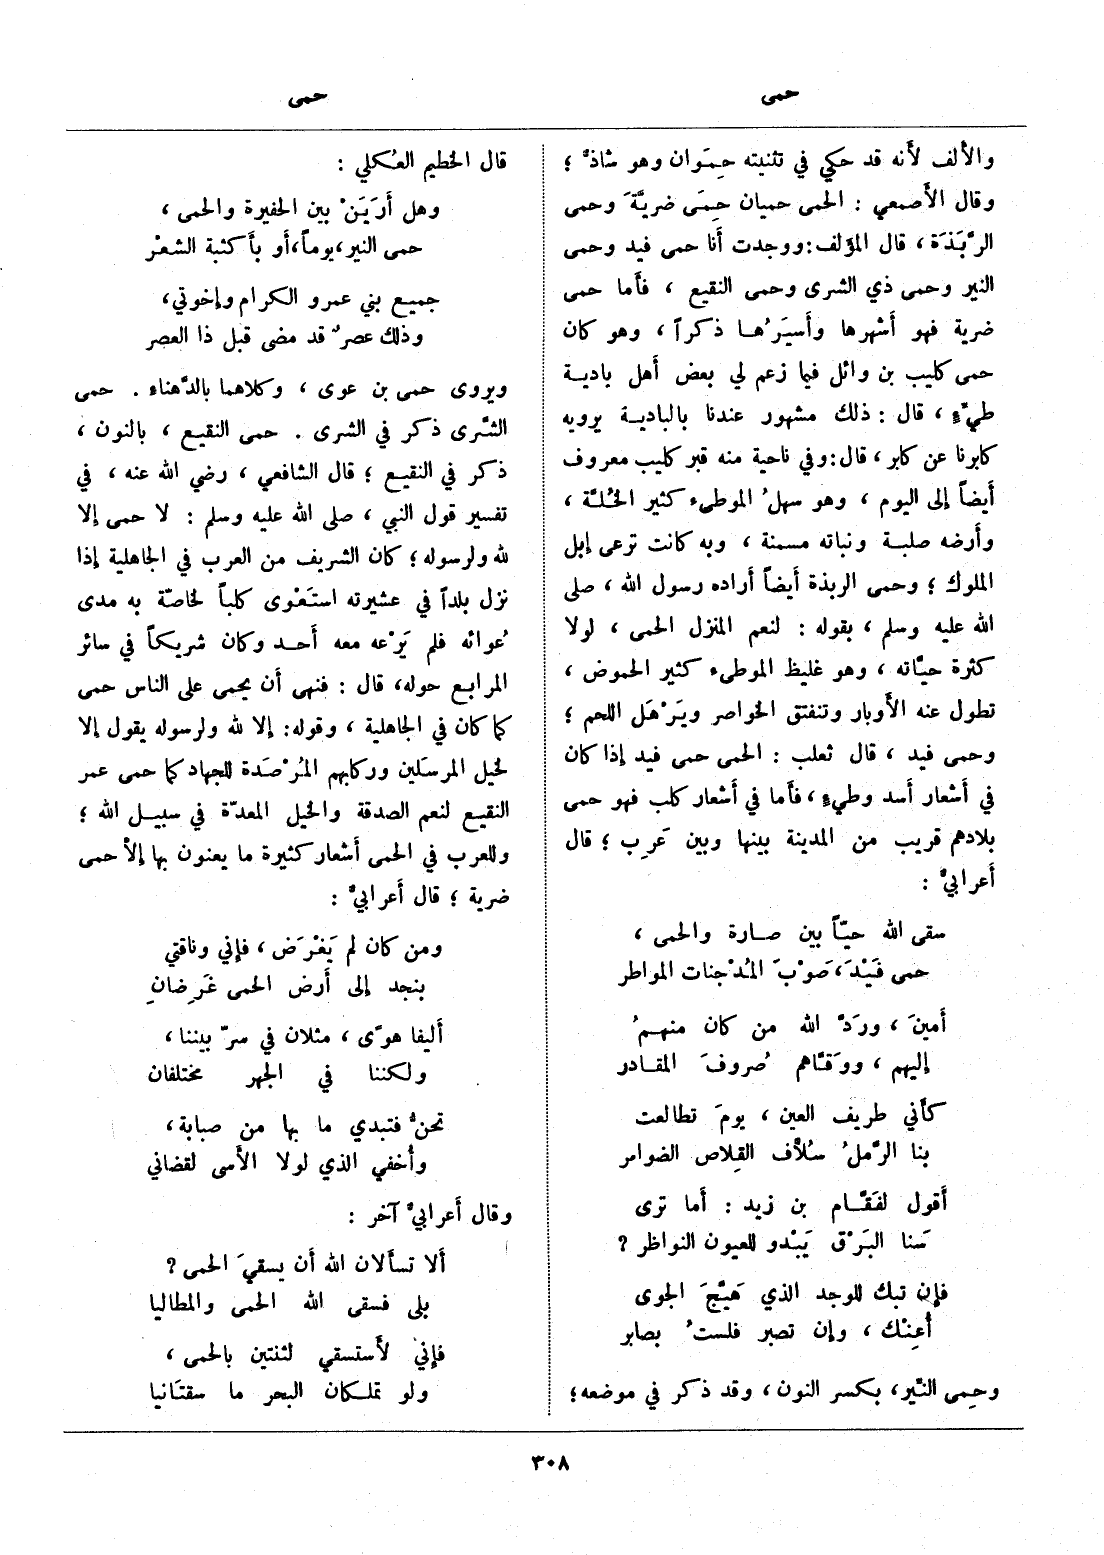 حمى
حمى
والألف لأنه قد حكي في تثنيته حِمَوان وهو شاذّ ؛
وقال الأصمعي : الحمى حميان حِمَى ضريّةَ وحمى
الرَّبَذَة ، قال المؤلف : ووجدت أنا حمى فيد وحمى
النير وحمى ذي الشرى وحمى النقيع ، فأما حمى
ضرية فهو أشهرها وأسيَرُها ذكراً ، وهو كان
حمى كليب بن وائل فيما زعم لي بعض أهل بادية
طيِّءٍ ، قال : ذلك مشهور عندنا بالبادية يرويه
كابرنا عن كابر ، قال : وفي ناحية منه قبر كليب معروف
أيضاً إلى اليوم ، وهو سهلُ الموطىء كثير الخُلَّة ،
وأرضه صلبة ونباته مسمنة ، وبه كانت ترعى إبل
الملوك ؛ وحمى الربذة أيضاً أراده رسول الله ، صلى
الله عليه وسلم ، بقوله : لنعم المنزل الحمى ، لولا
كثرة حيّاته ، وهو غليظ الموطىء كثير الحموض ،
تطول عنه الأوبار وتنفتق الخواصر ويَرْهَل اللحم ؛
وحمى فيد ، قال ثعلب : الحمى حمى فيد إذا كان
في أشعار أسد وطيءٍ ، فأما في أشعار كلب فهو حمى
بلادهم قريب من المدينة بينها وبين عَرِب ؛ قال
أعرابيٌّ :
سقى الله حيّاً بين صارة والحمى ،
حمى فَيْدَ ، صَوْبَ المُدْجنات المواطر
أمينَ ، وردَّ الله من كان منهمُ
إليهم ، ووَقّاهم صُروفَ المقادر
كأني طريف العين ، يومَ تطالعت
بنا الرَّملُ سُلاَّف القِلاص الضوامر
أقول لفَقّام بن زيد : أما ترى
سَنا البَرْق يَبْدو للعيون النواظر ؟
فإن تبك للوجد الذي هَيَّجَ الجوى
أُعِنْك ، وإن تصبر فلستُ بصابر
وحِمى النِّير ، بكسر النون ، وقد ذكر في موضعه ؛
قال الخطيم العُكلي :
وهل أرَيَنْ بين الحفيرة والحمى ،
حمى النير ، يوماً ، أو بأكثبة الشعْر
جميع بني عمرو الكرام وإخوتي ،
وذلك عصرٌ قد مضى قبل ذا العصر
ويروى حمى بن عوى ، وكلاهما بالدَّهناء . حمى
الشَّرى ذكر في الشرى . حمى النقيع ، بالنون ،
ذكر في النقيع ؛ قال الشافعي ، رضي الله عنه ، في
تفسير قول النبي ، صلى الله عليه وسلم : لا حمى إلا
لله ولرسوله ؛ كان الشريف من العرب في الجاهلية إذا
نزل بلداً في عشيرته استَعْوى كلباً لخاصّة به مدى
عُوائه فلم يَرْعه معه أحد وكان شريكاً في سائر
المرابع حوله ، قال : فنهى أن يحمى على الناس حمى
كما كان في الجاهلية ، وقوله : إلا لله ولرسوله يقول إلا
لخيل المرسَلين وركابهم المُرْصَدة للجهاد كما حمى عمر
النقيع لنعم الصدقة والخيل المعدّة في سبيل الله ؛
وللعرب في الحمى أشعار كثيرة ما يعنون بها إلاّ حمى
ضرية ؛ قال أعرابيٌّ :
ومن كان لم يَغْرَض ، فإني وناقتي
بنجد إلى أرض الحمى غَرِضانِ
أليفا هوًى ، مثلان في سرّ بيننا ،
ولكننا في الجهر مختلفان
تحنُّ فتبدي ما بها من صبابة ،
وأُخفي الذي لولا الأسى لقضاني
وقال أعرابيٌّ آخر :
ألا تسألان الله أن يسقيَ الحمى ؟
بلى فسقى الله الحمى والمطاليا
فإنيّ لأستسقي لثنتين بالحمى ،
ولو تملكان البحر ما سقتَانيا
٣٠٨